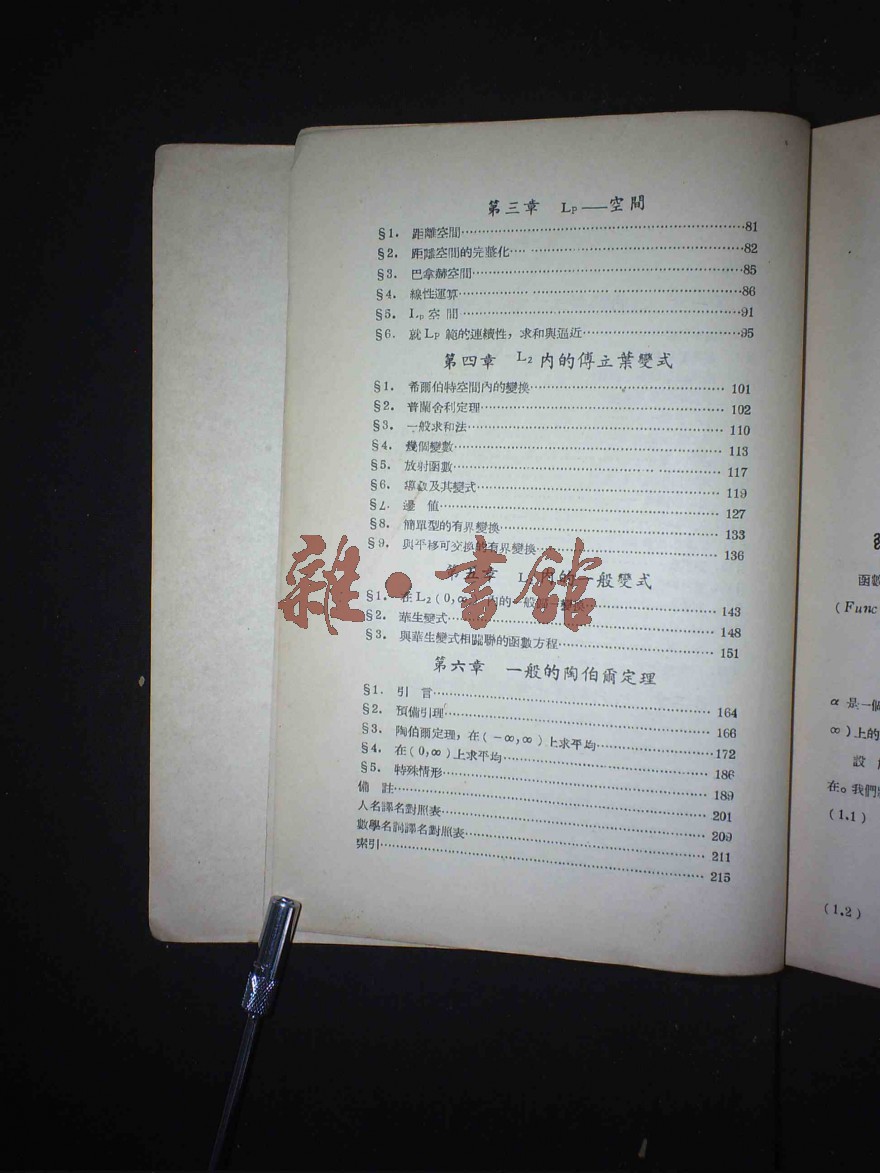 第三章 Lp——空間
§1. 距離空間……81
§2. 距離空間的完整化……82
§3. 巴拿赫空間……85
§4. 線性運算……86
§5. Lp 空間……91
§6. 就 Lp 範的連續性，求和與逼近……95
第四章 L₂ 內的傅立葉變式
§1. 希爾伯特空間內的變換……101
§2. 普蘭舍利定理……102
§3. 一般求和法……110
§4. 幾個變數……113
§5. 放射函數……117
§6. 導數及其變式……119
§7. 邊值……127
§8. 簡單型的有界變換……133
§9. 與平移可交換的有界變換……136
第五章 L 內的一般變式
§1. 在 L₂(0,∞) 內的一般 變換……143
§2. 華生變式……148
§3. 與華生變式相關聯的函數方程……151
第六章 一般的陶伯爾定理
§1. 引言……164
§2. 預備引理……166
§3. 陶伯爾定理，在(－∞,∞)上求平均……172
§4. 在(0,∞)上求平均……186
§5. 特殊情形……189
備註……201
人名譯名對照表……209
數學名詞譯名對照表……211
索引……215
雜·書館
函數
(Func
α 是一個
∞)上的
設
在。我們
(1.1)
(1.2)